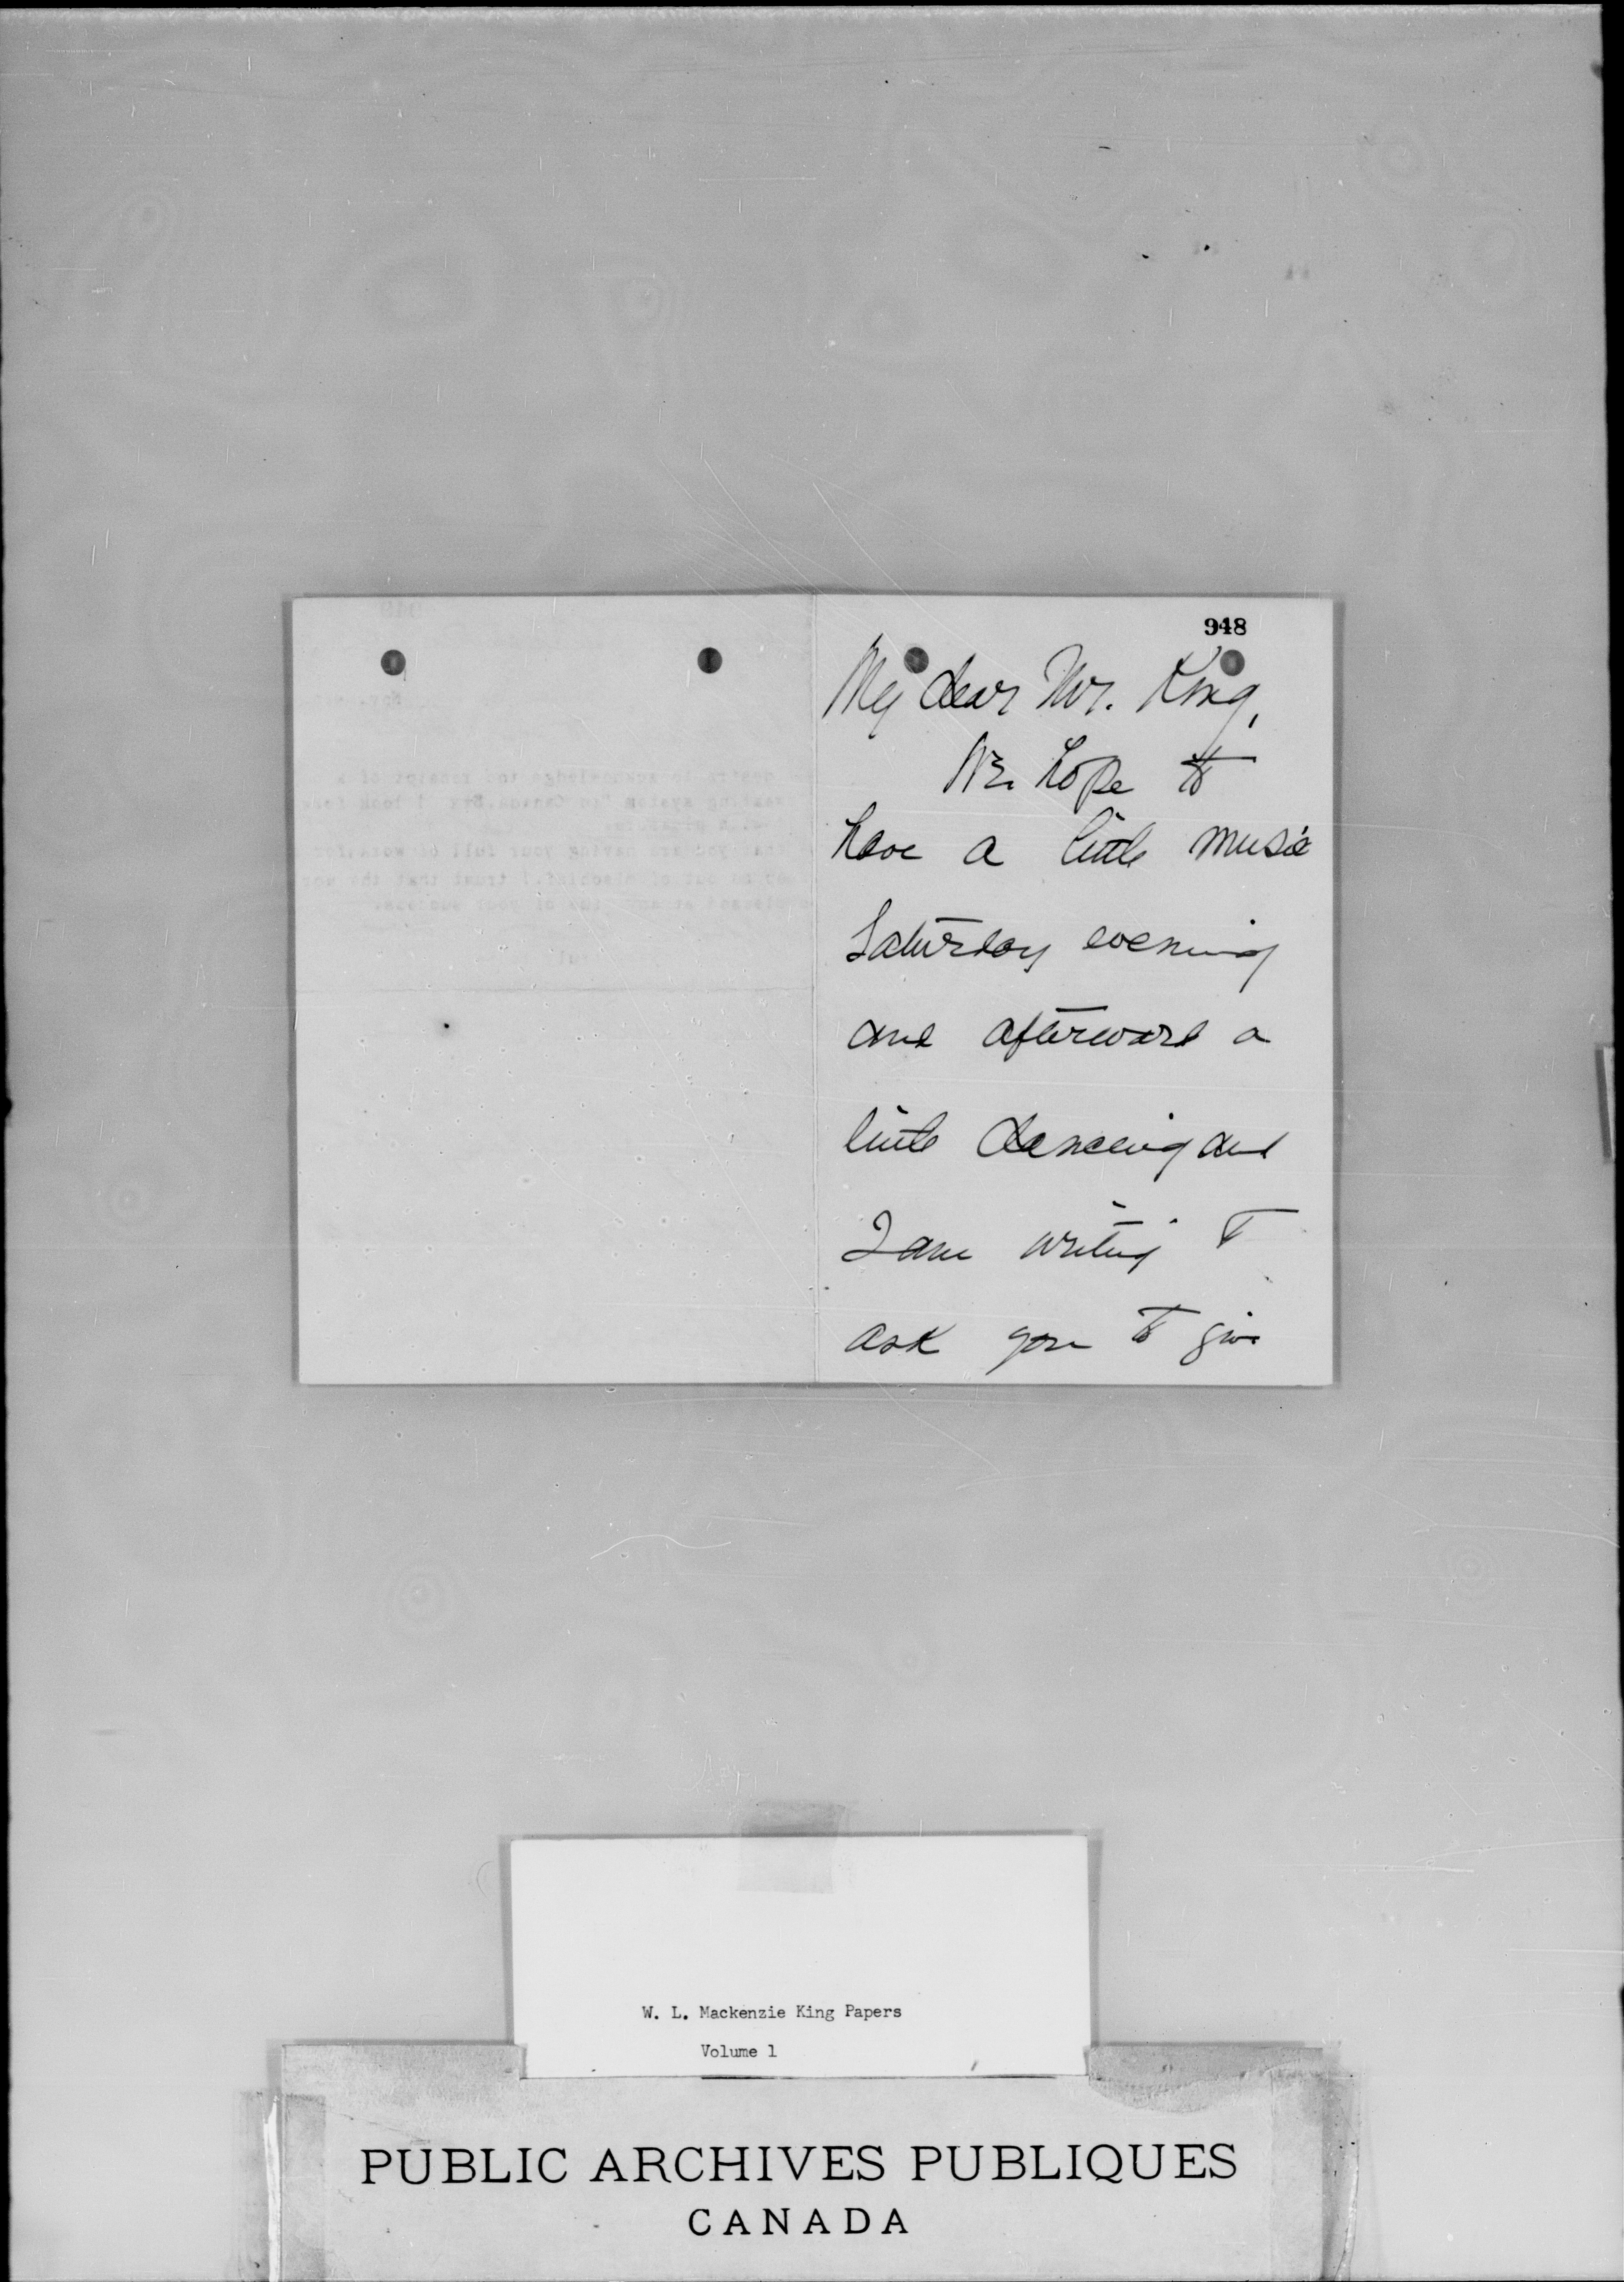 948
My dear Mr. King,
We hope to
have a little music
Saturday evening
and afterward a
little dancing and
I am writing to
ask you to give
W. L. Mackenzie King Papers
Volume 1
PUBLIC ARCHIVES PUBLIQUES
CANADA